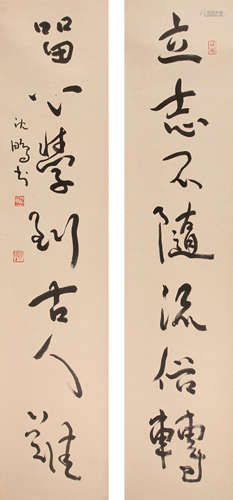 立志不隨流俗轉
留心學到古人難
沈鵬書